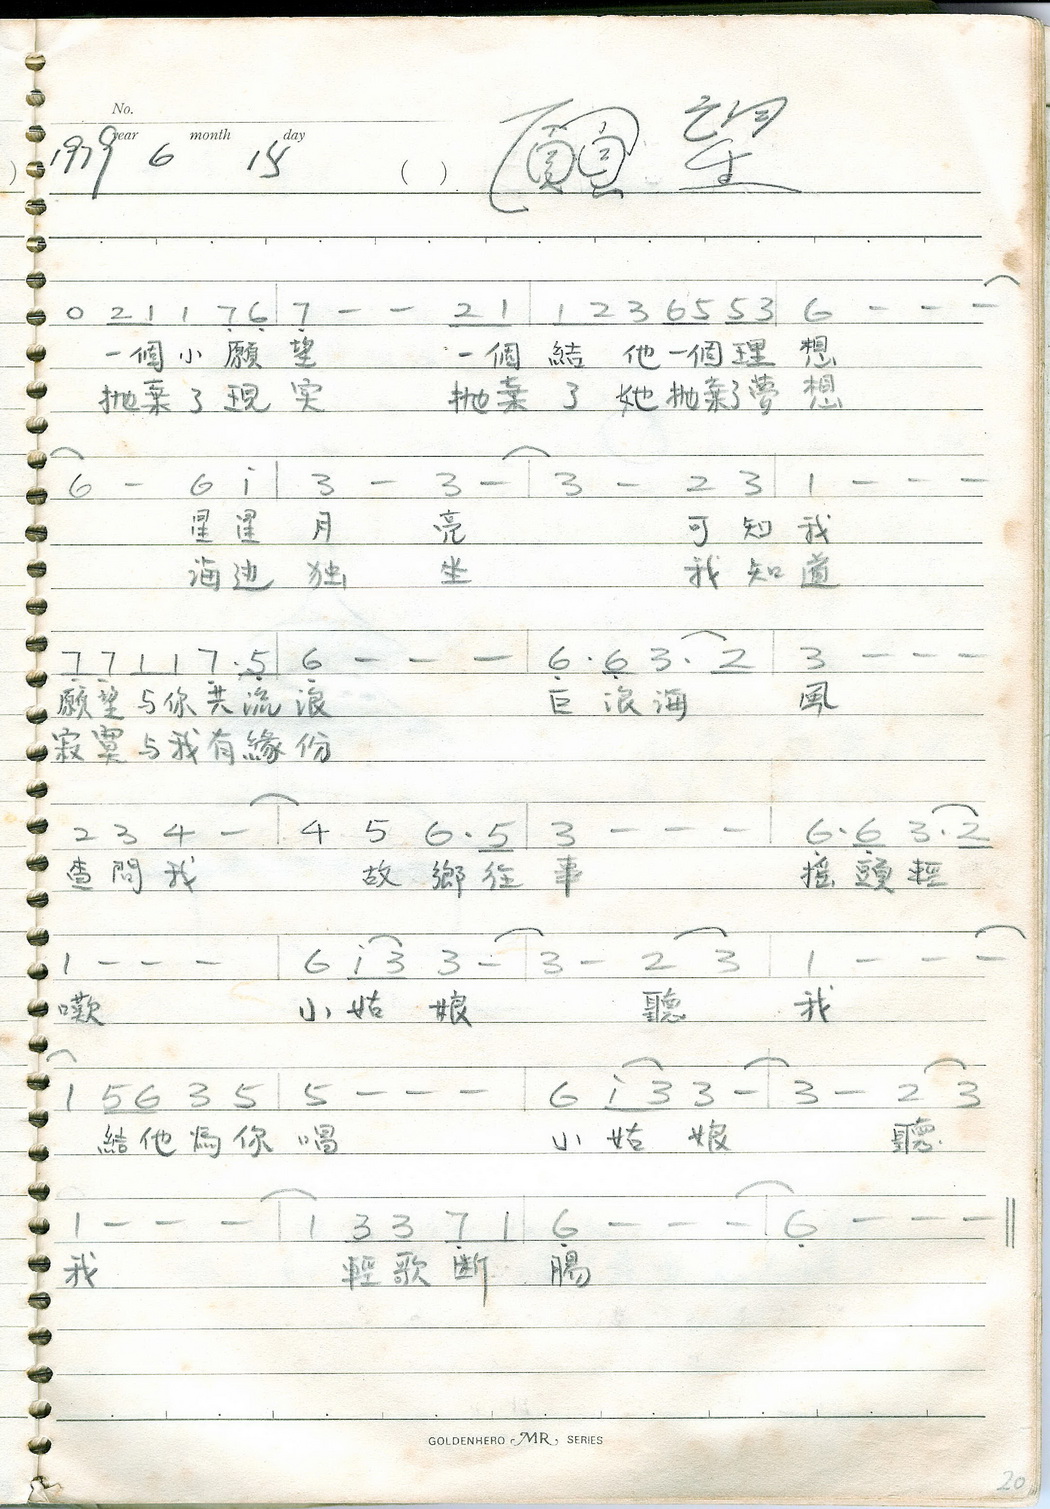 No.
year month day
1979 6 15 ( ) 願望
0 21 1 76 | 7 - - 21 | 1 2 3 65 53 | 6 - - -
一個小願望 一個結他一個理想
抛棄了現实 抛棄了她抛棄了夢想
6 - 6 i | 3 - 3 - | 3 - 2 3 | 1 - - -
星星月亮 可知我
海边独坐 我知道
7 7 1 1 7·5 | 6 - - - | 6·6 3·2 | 3 - - -
願望与你共流浪 巨浪海風
寂寞与我有緣份
2 3 4 - | 4 5 6·5 | 3 - - - | 6·6 3·2
查問我 故鄉往事 搖頭輕
1 - - - | 6 i3 3 - | 3 - 2 3 | 1 - - -
嘆 小姑娘 聽我
1 56 3 5 | 5 - - - | 6 i3 3 - | 3 - 2 3
結他為你唱 小姑娘 聽
1 - - - | 1 33 71 | 6 - - - | 6 - - - ||
我 輕歌断腸
GOLDENHERO MR SERIES
20